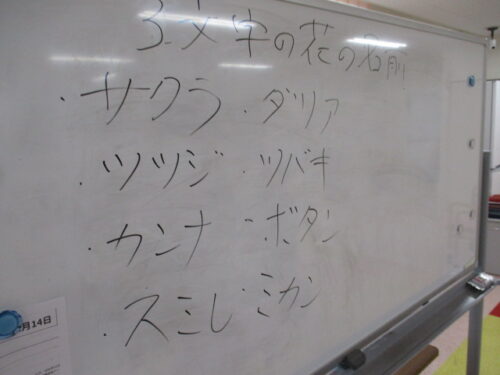 3文字の花の名前
・サクラ ・ダリア
・ツツジ ・ツバキ
・カンナ ・ボタン
・スミレ ・ミカン
月14日